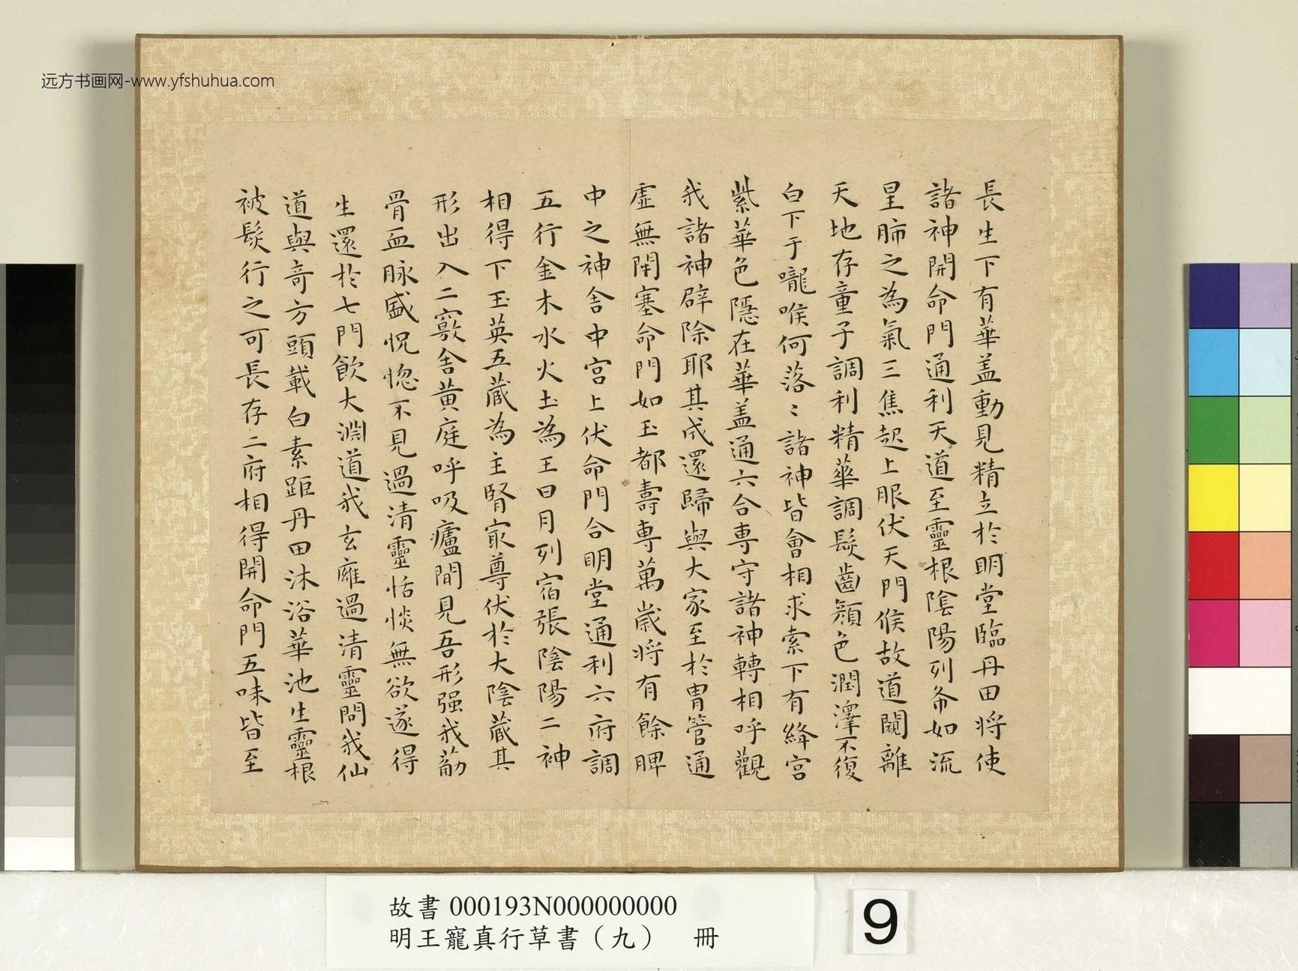 远方书画网-www.yfshuhua.com
長生下有華盖動見精立於明堂臨丹田將使
諸神開命門通利天道至靈根陰陽列布如流
星肺之為氣三焦起上服伏天門候故道闚離
天地存童子調利精華調髮齒顏色潤澤不復
白下于嚨喉何落〻諸神皆會相求索下有絳宮
紫華色隱在華盖通六合専守諸神轉相呼觀
我諸神辟除耶其成還歸與大家至於胃管通
虛無閉塞命門如玉都壽専萬歲將有餘脾
中之神舍中宮上伏命門合明堂通利六府調
五行金木水火土為王日月列宿張陰陽二神
相得下玉英五藏為主腎㝡尊伏於大陰藏其
形出入二竅舍黄庭呼吸廬間見吾形强我筋
骨血脉盛怳惚不見過清靈恬惔無欲遂得
生還於七門飲大淵道我玄雍過清靈問我仙
道與奇方頭載白素距丹田沐浴華池生靈根
被髮行之可長存二府相得開命門五味皆至
故書 000193N000000000
明王寵真行草書（九） 冊
9